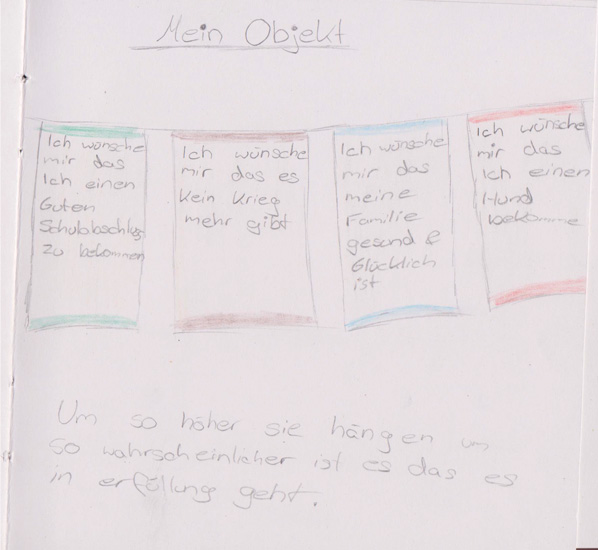 Mein Objekt
Ich wünsche
mir das
Ich einen
Guten
Schulabschluss
zu bekommen
Ich wünsche
mir das es
Kein Krieg
mehr gibt
Ich wünsche
mir das
meine
Familie
gesund &
Glücklich
ist
Ich wünsche
mir das
Ich einen
Hund
bekomme
Um so höher sie hängen um
so wahrscheinlicher ist es das es
in erfüllung geht.